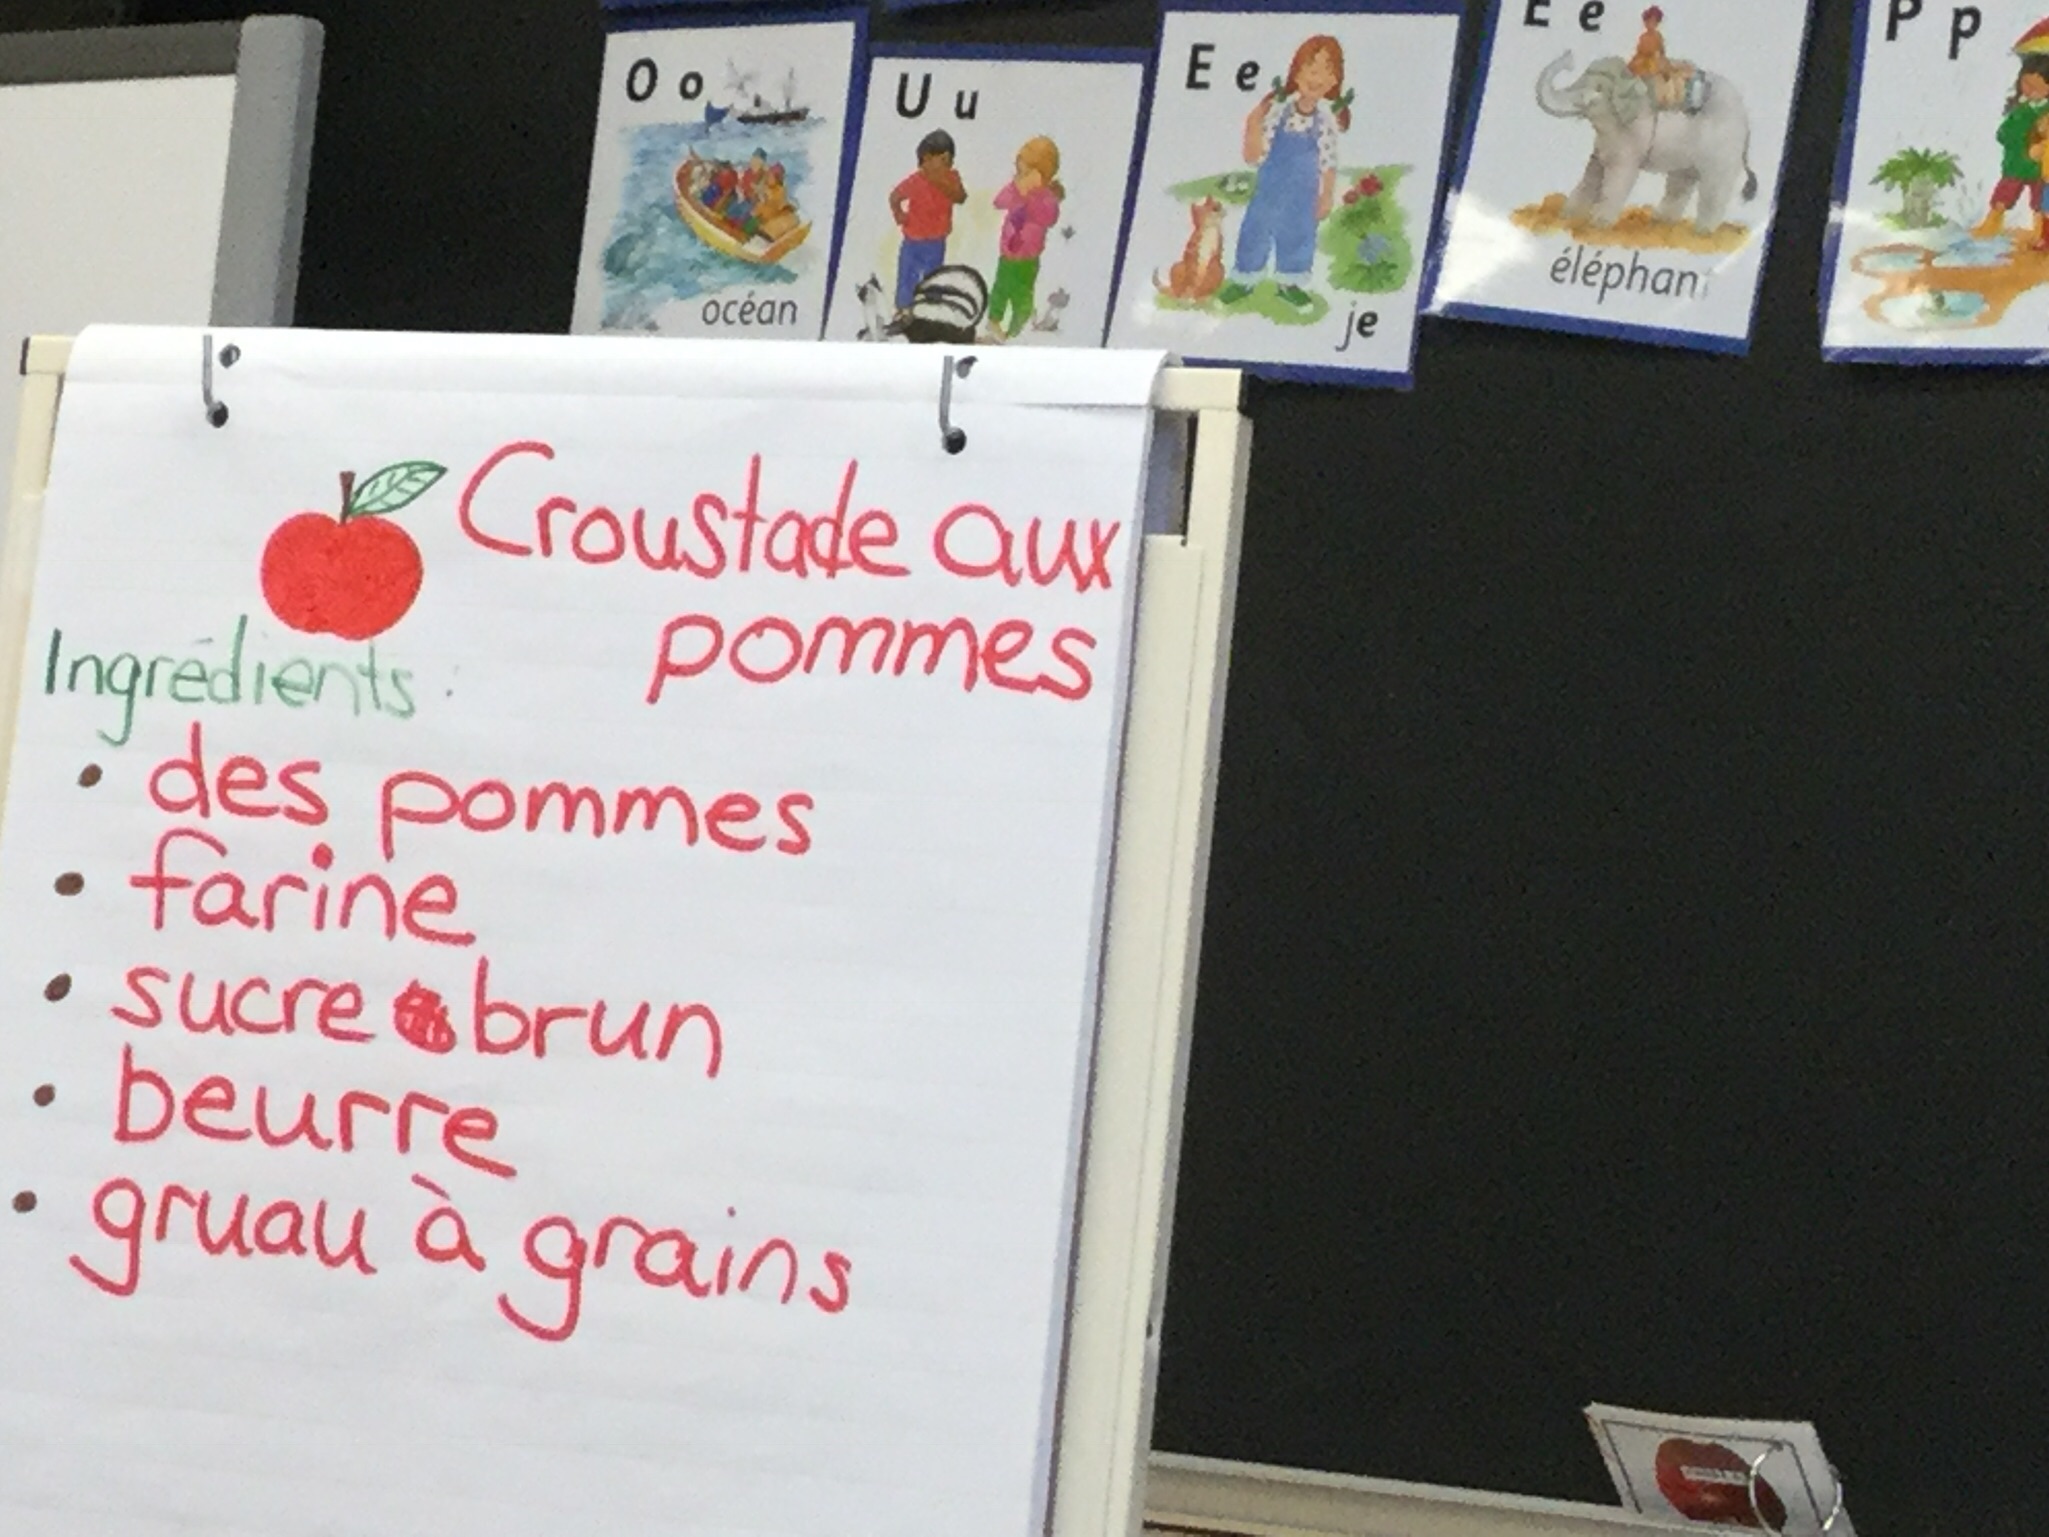 O o
océan
U u
E e
je
E e
éléphant
P p
Croustade aux
pommes
Ingrédients :
• des pommes
• farine
• sucre brun
• beurre
• gruau à grains